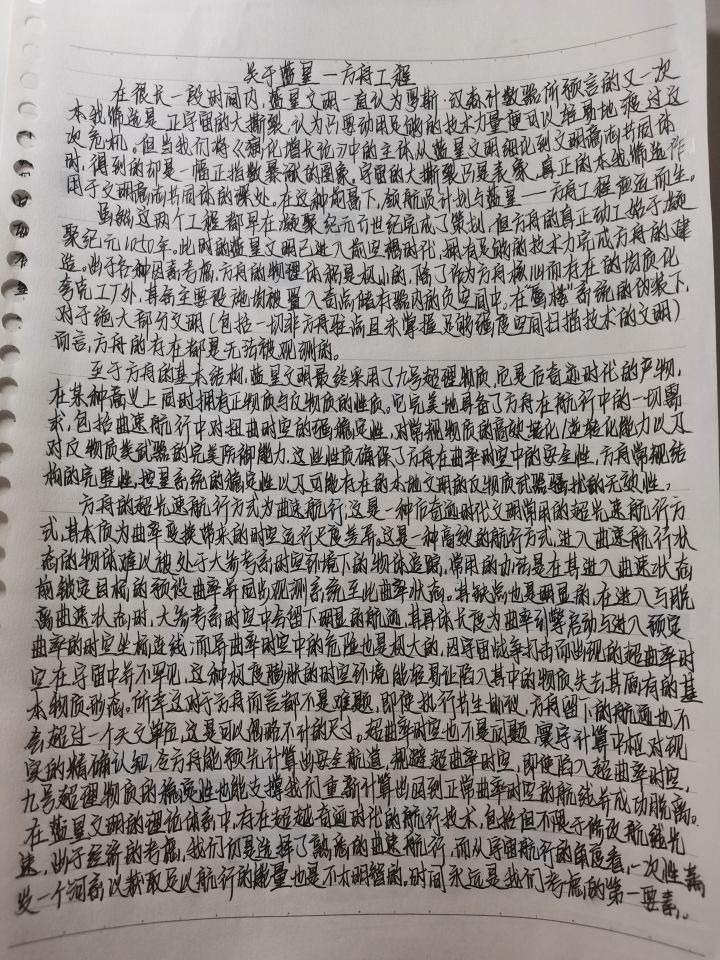 关于蓝星一方舟工程
在很长一段时间内，蓝星文明一直认为 计数器所预言的又一次
本我筛选是正宇宙的大撕裂，认为只要动用足够的技术力量便可以轻易地渡过这
次危机。但当我们将《 化增长论》中的主体从蓝星文明细化到文明意志共同体
时，得到的却是一幅正指数暴涨的图象。宇宙的大撕裂乃是表象，真正的本我筛选作
用于文明意志共同体的深处。在这种前提下，领航员计划与蓝星——方舟工程应运而生。
虽然这两个工程都早在凝聚纪元 世纪完成了策划，但方舟的真正动工始于凝
聚纪元1070年。此时的蓝星文明已进入前空 时代，拥有足够的技术力完成方舟的建
造。出于各种因素考虑，方舟的物理体积是极小的，除了作为方舟核心而存在的均质化
夸克工厂外，其余主要设施均被置入奇点储存器内的负空间中，在“蜃楼”系统的伪装下，
对于绝大部分文明（包括一切非方舟驻点且未掌握足够强度空间扫描技术的文明）
而言，方舟的存在都是无法被观测的。
至于方舟的基本结构，蓝星文明最终采用了九号超理物质，它是后奇迹时代的产物，
在某种意义上同时拥有正物质与反物质的性质。它完美地具备了方舟在航行中的一切需
求，包括曲速航行中对扭曲时空的强稳定性，对常规物质的高效转化/逆转化能力以及
对反物质类武器的完美防御能力，这些性质确保了方舟在曲率时空中的安全性，方舟常规结
构的完整性，换置系统的稳定性以及可能存在的本地文明的反物质武器骚扰的无效性。
方舟的超光速航行方式为曲速航行，这是一种后奇迹时代文明常用的超光速航行方
式，其本质为曲率变换带来的时空运行尺度差异。这是一种高效的航行方式，进入曲速航行状
态的物体难以被处于大参考系时空环境下的物体追踪，常用的办法是在其进入曲速状态
前锁定目标的预设曲率并同步观测系统至此曲率状态。其缺点也是明显的，在进入与脱
离曲速状态时，大参考系时空中会留下明显的航迹，其具体长度为曲率引擎启动与进入预定
曲率的时空坐标连线；而异曲率时空中的危险也是极大的，因宇宙战争打击而出现的超曲率时
空在宇宙中并不罕见，这种极度膨胀的时空环境能轻易让陷入其中的物质失去其固有的基
本物质形态。所幸这对于方舟而言都不是难题，即使执行共生协议，方舟留下的航迹也不
会超过一个天文单位，这是可以忽略不计的尺寸。超曲率时空也不是问题，寰宇计算中枢对现
实的精确认知，令方舟能预先计算出安全航道，规避超曲率时空，即使陷入超曲率时空，
九号超理物质的稳定性也能支撑我们重新计算出回到正常曲率时空的航线并成功脱离。
在蓝星文明的理论体系中，存在超越奇迹时代的航行技术，包括但不限于修改航线光
速，出于经济的考虑，我们仍是选择了熟悉的曲速航行，而从宇宙航行的角度看，一次性蒸
发一个河系以获取足以航行的能量也是不太明智的。时间永远是我们考虑的第一要素。